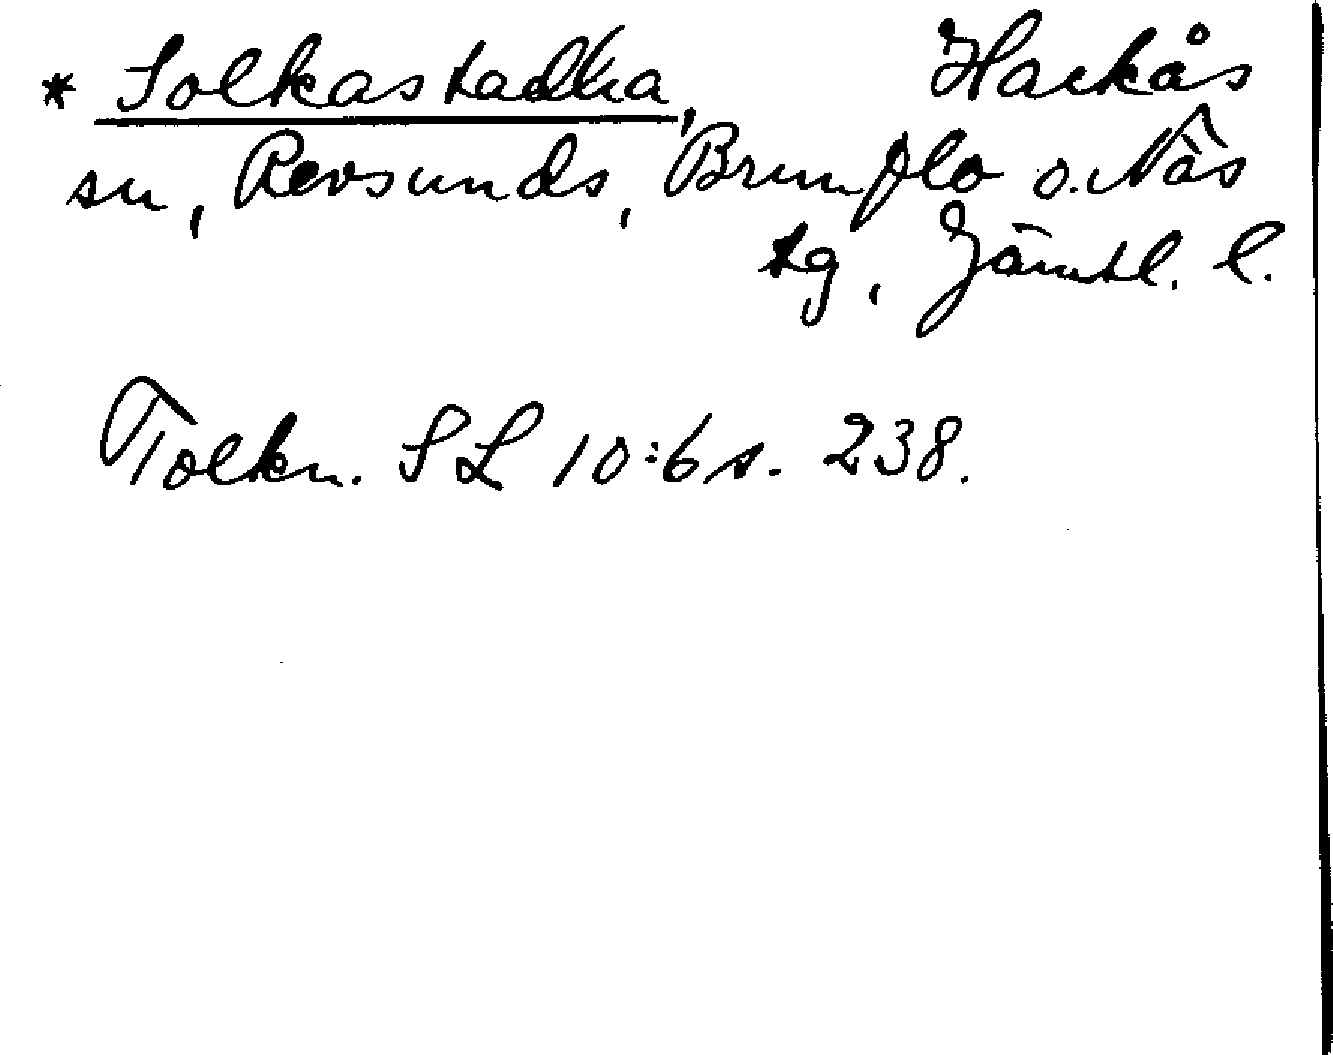 * Solkastadha, Hackås
sn, Revsunds, Brunflo o. Näs
tg, Jämtl. l.
Tolkn. SL 10:6 s. 238.